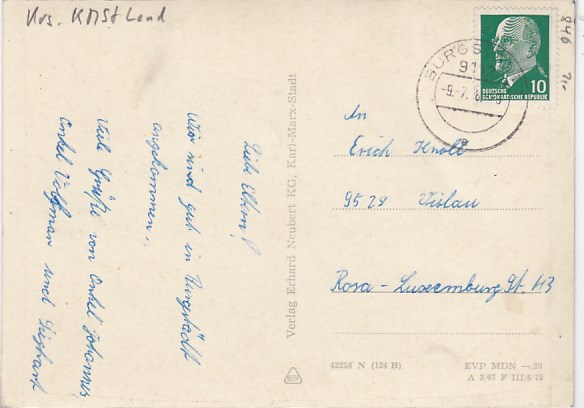 Krs. KMSt Land
846
Liebe Eltern!
Wir sind gut in Burgstädt
angekommen.
Viele Grüße von Onkel Johannes
Onkel Wolfman und
Verlag Erhard Neubert KG, Karl-Marx-Stadt
BURGS
91
-9.-7.
10
DEUTSCHE
DEMOKRATISCHE REPUBLIK
An
Erich Knoll
9529 Vielau
Rosa-Luxemburg St. 43
42258 N (124 B)
EVP MDN —.20
A 3/67 F III/6/75